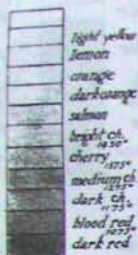 light yellow
lemon
orange
dark orange
salmon
bright ch.
1450°
cherry
1375°
medium ch.
1275°
dark ch.
1175°
blood red
1075°
dark red